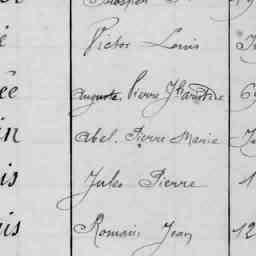 é Victor Louis
ée auguste Pierre J
in abel. Pierre Marie
is Jules Pierre 1
uis Romain Jean 12